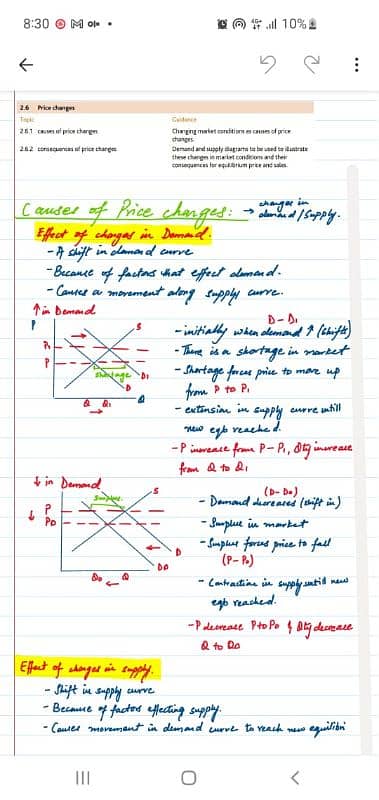 8:30
10%
2.6 Price changes
Topic Guidance
2.6.1 causes of price changes Changing market conditions as causes of price changes
2.6.2 consequences of price changes Demand and supply diagrams to be used to illustrate these changes in market conditions and their consequences for equilibrium price and sales.
Causes of Price changes: → changes in demand/supply.
Effect of changes in Demand.
- A shift in demand curve
- Because of factors that effect demand.
- Causes a movement along supply curve.
↑ in Demand
P S
P₁
P
shortage D₁
D
Q Q₁ Q
D-D₁
- initially when demand ↑ (shift)
- There is a shortage in market
- Shortage forces price to move up
from P to P₁
- extension in supply curve untill
new eqb reached.
- P increase from P-P₁, Qty increase
from Q to Q₁
↓ in Demand
Surplus S
↓ P
P₀
D
D₀
Q₀ ← Q
(D-D₀)
- Demand decreased (shift in)
- Surplus in market
- Surplus forces price to fall
(P-P₀)
- Contraction in supply until new
eqb reached.
- P decrease P to P₀ & Qty decrease
Q to Q₀
Effect of changes in supply.
- Shift in supply curve
- Because of factors effecting supply.
- Causes movement in demand curve to reach new equilibri